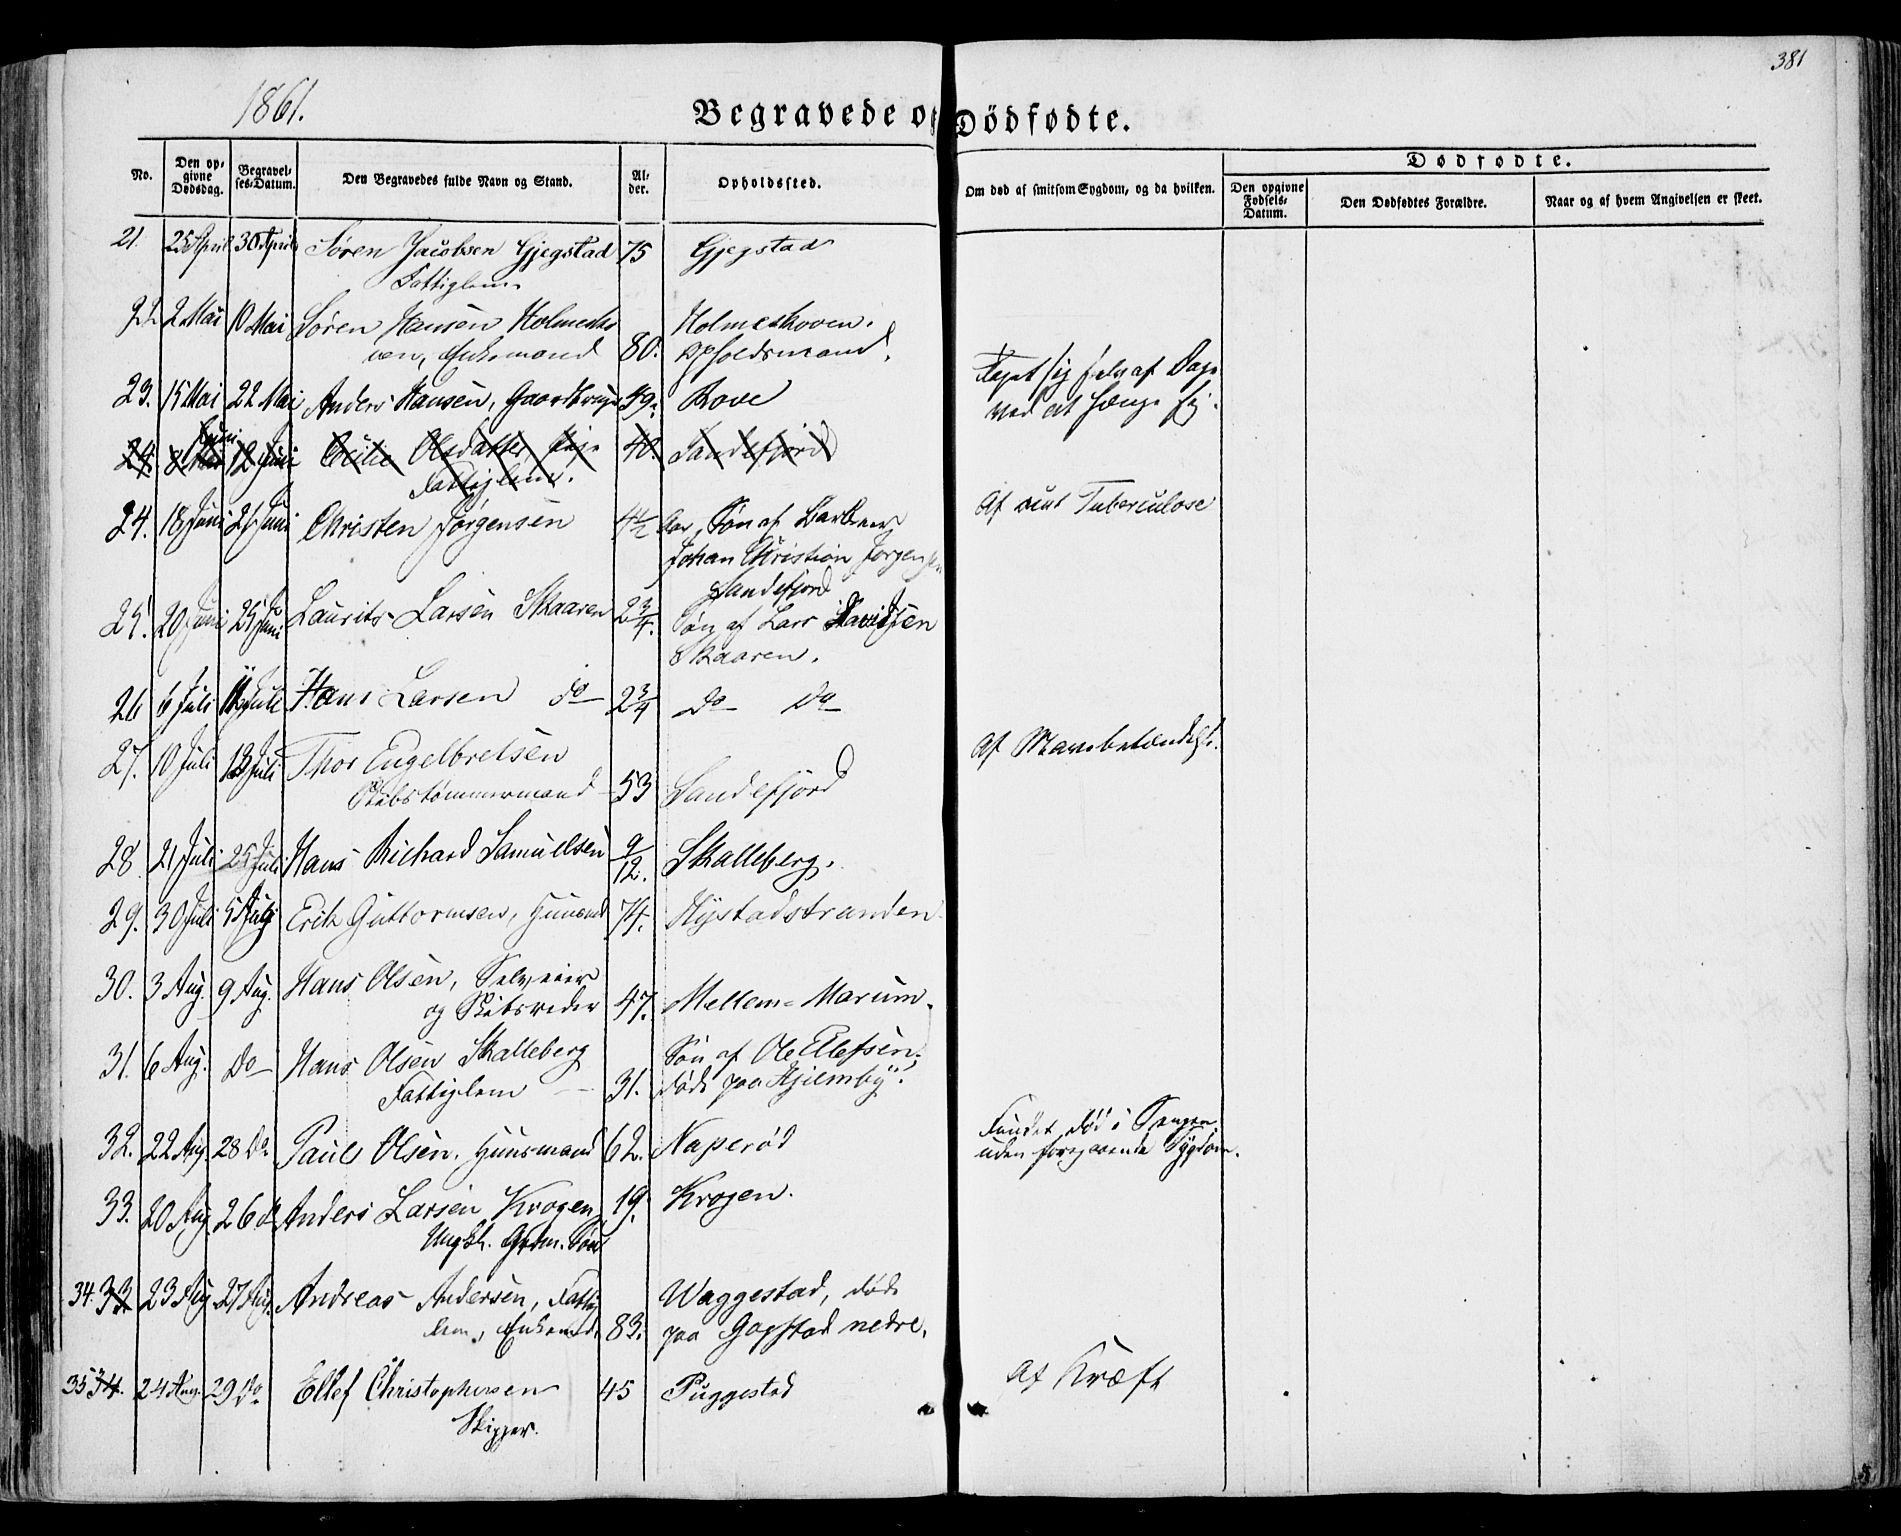 381
1861.
Begravede o Dødfødte.
No.
Den op-
givne
Dødsdag.
Begravel-
ses-Datum.
Den Begravedes fulde Navn og Stand.
Al-
der.
Opholdssted.
Om død af smitsom Sygdom, og da hvilken.
Dødfødte.
Den opgivne
Fødsels-
Datum.
Den Dødfødtes Forældre.
Naar og af hvem Angivelsen er skeet.
21. 25 April 30 April Søren Jacobsen Gjegstad 75 Gjegstad
Fattiglem
22. 2 Mai 10 Mai Søren Hansen Holmesko Holmeskoven.
ven, Enkemand 80. Opholdsmand.
Taget sig selv af Dage
23. 15 Mai 22 Mai Anders Hansen, Gaardbruger 49. Rove ved at hænge sig.
Juni
24 8 Mai 12 Juni Cicilie Olsdatter 40. Sandefjord
Fattiglem.
24. 18 Juni 21 Juni Christen Jørgensen 4½ Aar, Søn af Af Tuberculose
Johan Christian Jørgensen
Sandefjord
25. 20 Juni 25 Juni Laurits Larsen Skaaren 2¾. Søn af Lars Davidsen
Skaaren.
26 6 Juli 11 Juli Hans Larsen do 2¾ Do Do
27. 10 Juli 12 Juli Thor Engelbretsen Af Mavebetændelse.
Skibstømmermand 53 Sandefjord
28 21 Juli 25 Juli Hans Richard Samuelsen 9/12. Skalleberg.
29. 30 Juli 5 Aug Erik Guttormsen, Huusmd 74. Hystadstranden
30. 3 Aug. 9 Aug. Hans Olsen, Selveier
og Skibsreder 47. Mellem-Marum.
31. 6 Aug. Do Hans Olsen Skalleberg Søn af Ole Ellefsen,
Fattiglem 31. døde paa Hjelmby.
Fundet død i Sengen
32. 22 Aug. 28 Do Paul Olsen. Huusmand 62. Naperød uden foregaaende Sygdom.
33. 20 Aug. 26 do Anders Larsen Krogen 19. Krogen.
Ungk. Grdm. Søn
34. 33 23 Aug 27 Aug. Andreas Andersen, Fattig Waggestad, døde
lem, Enkemd. 83. paa Gogstad nedre.
35 34. 24 Aug. 29 Do Ellef Christophersen 45 Puggestad Af Kræft
Skipper.